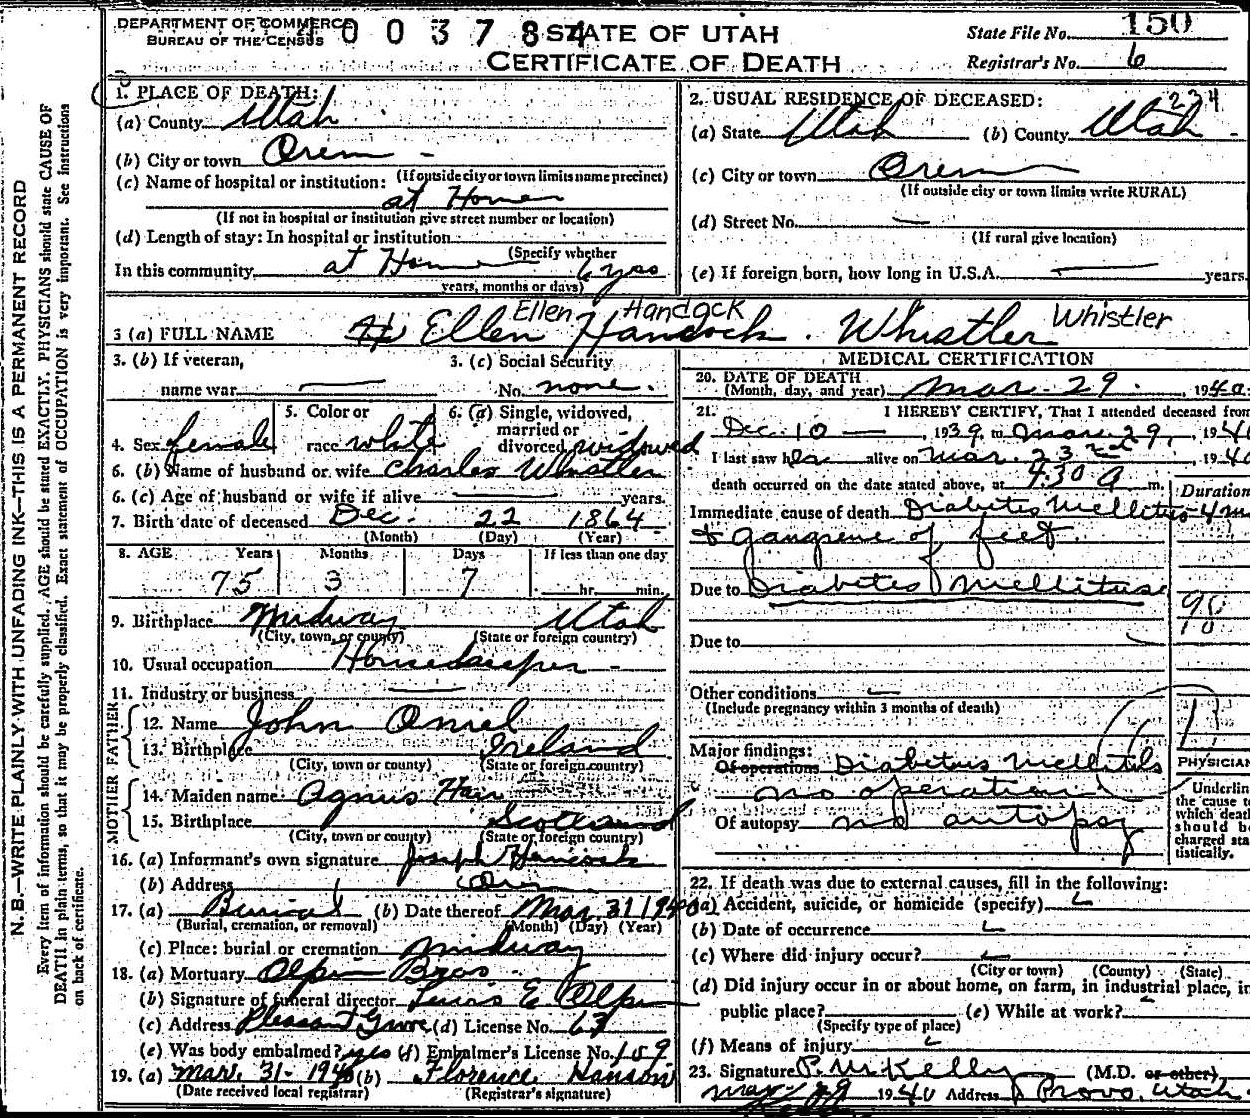 DEPARTMENT OF COMMERCE
BUREAU OF THE CENSUS
4 0 0 3 7 8 4
STATE OF UTAH
CERTIFICATE OF DEATH
State File No. 150
Registrar's No. 6
N. B.—WRITE PLAINLY WITH UNFADING INK—THIS IS A PERMANENT RECORD
Every item of information should be carefully supplied. AGE should be stated EXACTLY. PHYSICIANS should state CAUSE OF
DEATH in plain terms, so that it may be properly classified. Exact statement of OCCUPATION is very important. See instructions
on back of certificate.
1. PLACE OF DEATH:
(a) County Utah
(b) City or town Orem -
(If outside city or town limits name precinct)
(c) Name of hospital or institution:
at Home
(If not in hospital or institution give street number or location)
(d) Length of stay: In hospital or institution
(Specify whether
In this community at Home 6 yrs
years, months or days)
2. USUAL RESIDENCE OF DECEASED:
234
(a) State Utah (b) County Utah -
(c) City or town Orem
(If outside city or town limits write RURAL)
(d) Street No. —
(If rural give location)
(e) If foreign born, how long in U.S.A. — years.
Ellen Handock Whistler
3 (a) FULL NAME Ellen Hancock. Whistler
3. (b) If veteran,
name war —
3. (c) Social Security
No. none.
4. Sex female
5. Color or
race white
6. (a) Single, widowed,
married or
divorced widowed
6. (b) Name of husband or wife Charles Whistler
6. (c) Age of husband or wife if alive — years.
7. Birth date of deceased Dec. 22 1864
(Month) (Day) (Year)
8. AGE Years Months Days If less than one day
75 3 7 hr. min.
9. Birthplace Midway Utah
(City, town, or county) (State or foreign country)
10. Usual occupation Housekeeper -
11. Industry or business —
FATHER
12. Name John
13. Birthplace Ireland
(City, town or county) (State or foreign country)
MOTHER
14. Maiden name Agnus
15. Birthplace Scotland
(City, town or county) (State or foreign country)
16. (a) Informant's own signature Joseph Hancock
(b) Address Orem
17. (a) Burical (b) Date thereof Mar. 31 1940
(Burial, cremation, or removal) (Month) (Day) (Year)
(c) Place: burial or cremation Midway
18. (a) Mortuary Olpin Bros
(b) Signature of funeral director E Olpin
(c) Address Pleasant Grove (d) License No. 67
(e) Was body embalmed? yes (f) Embalmer's License No. 109
19. (a) Mar. 31- 1940 (b) Florence Hanson
(Date received local registrar) (Registrar's signature)
MEDICAL CERTIFICATION
20. DATE OF DEATH
(Month, day, and year) Mar. 29. 1940.
21. I HEREBY CERTIFY, That I attended deceased from
Dec. 10 —, 1939, to Mar. 29, 1940
I last saw her alive on Mar. 23rd 1940
death occurred on the date stated above, at 4:30 A m.
Duration
Immediate cause of death Diabetes Mellitus - 4
& gangrene of feet
Due to Diabetes Mellitus
98
Due to
Other conditions —
(Include pregnancy within 3 months of death)
Major findings:
Of operations Diabetus Mellitus
no operation
Of autopsy no autopsy
PHYSICIAN
Underlin
the cause to
which death
should be
charged sta
tistically.
22. If death was due to external causes, fill in the following:
(a) Accident, suicide, or homicide (specify)
(b) Date of occurrence
(c) Where did injury occur?
(City or town) (County) (State)
(d) Did injury occur in or about home, on farm, in industrial place, in
public place? (e) While at work?
(Specify type of place)
(f) Means of injury
23. Signature P. M. Kelly (M.D. or other)
Mar. 29 1940 Address Provo, Utah
Kelly